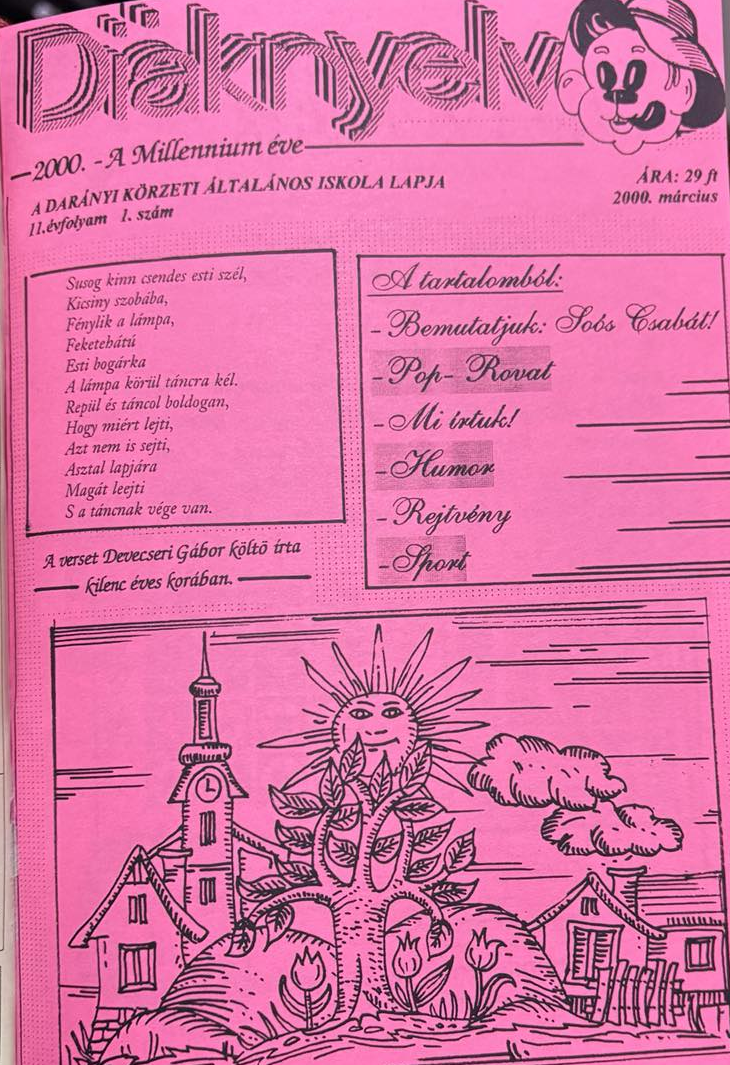 Diáknyelv
2000. - A Millennium éve
A DARÁNYI KÖRZETI ÁLTALÁNOS ISKOLA LAPJA
11.évfolyam 1. szám
ÁRA: 29 ft
2000. március
Susog kinn csendes esti szél,
Kicsiny szobába,
Fénylik a lámpa,
Feketehátú
Esti bogárka
A lámpa körül táncra kél.
Repül és táncol boldogan,
Hogy miért lejti,
Azt nem is sejti,
Asztal lapjára
Magát leejti
S a táncnak vége van.
A verset Devecseri Gábor költö írta
kilenc éves korában.
A tartalomból:
- Bemutatjuk: Soós Csabát!
- Pop- Rovat
- Mi írtuk!
- Humor
- Rejtvény
- Sport